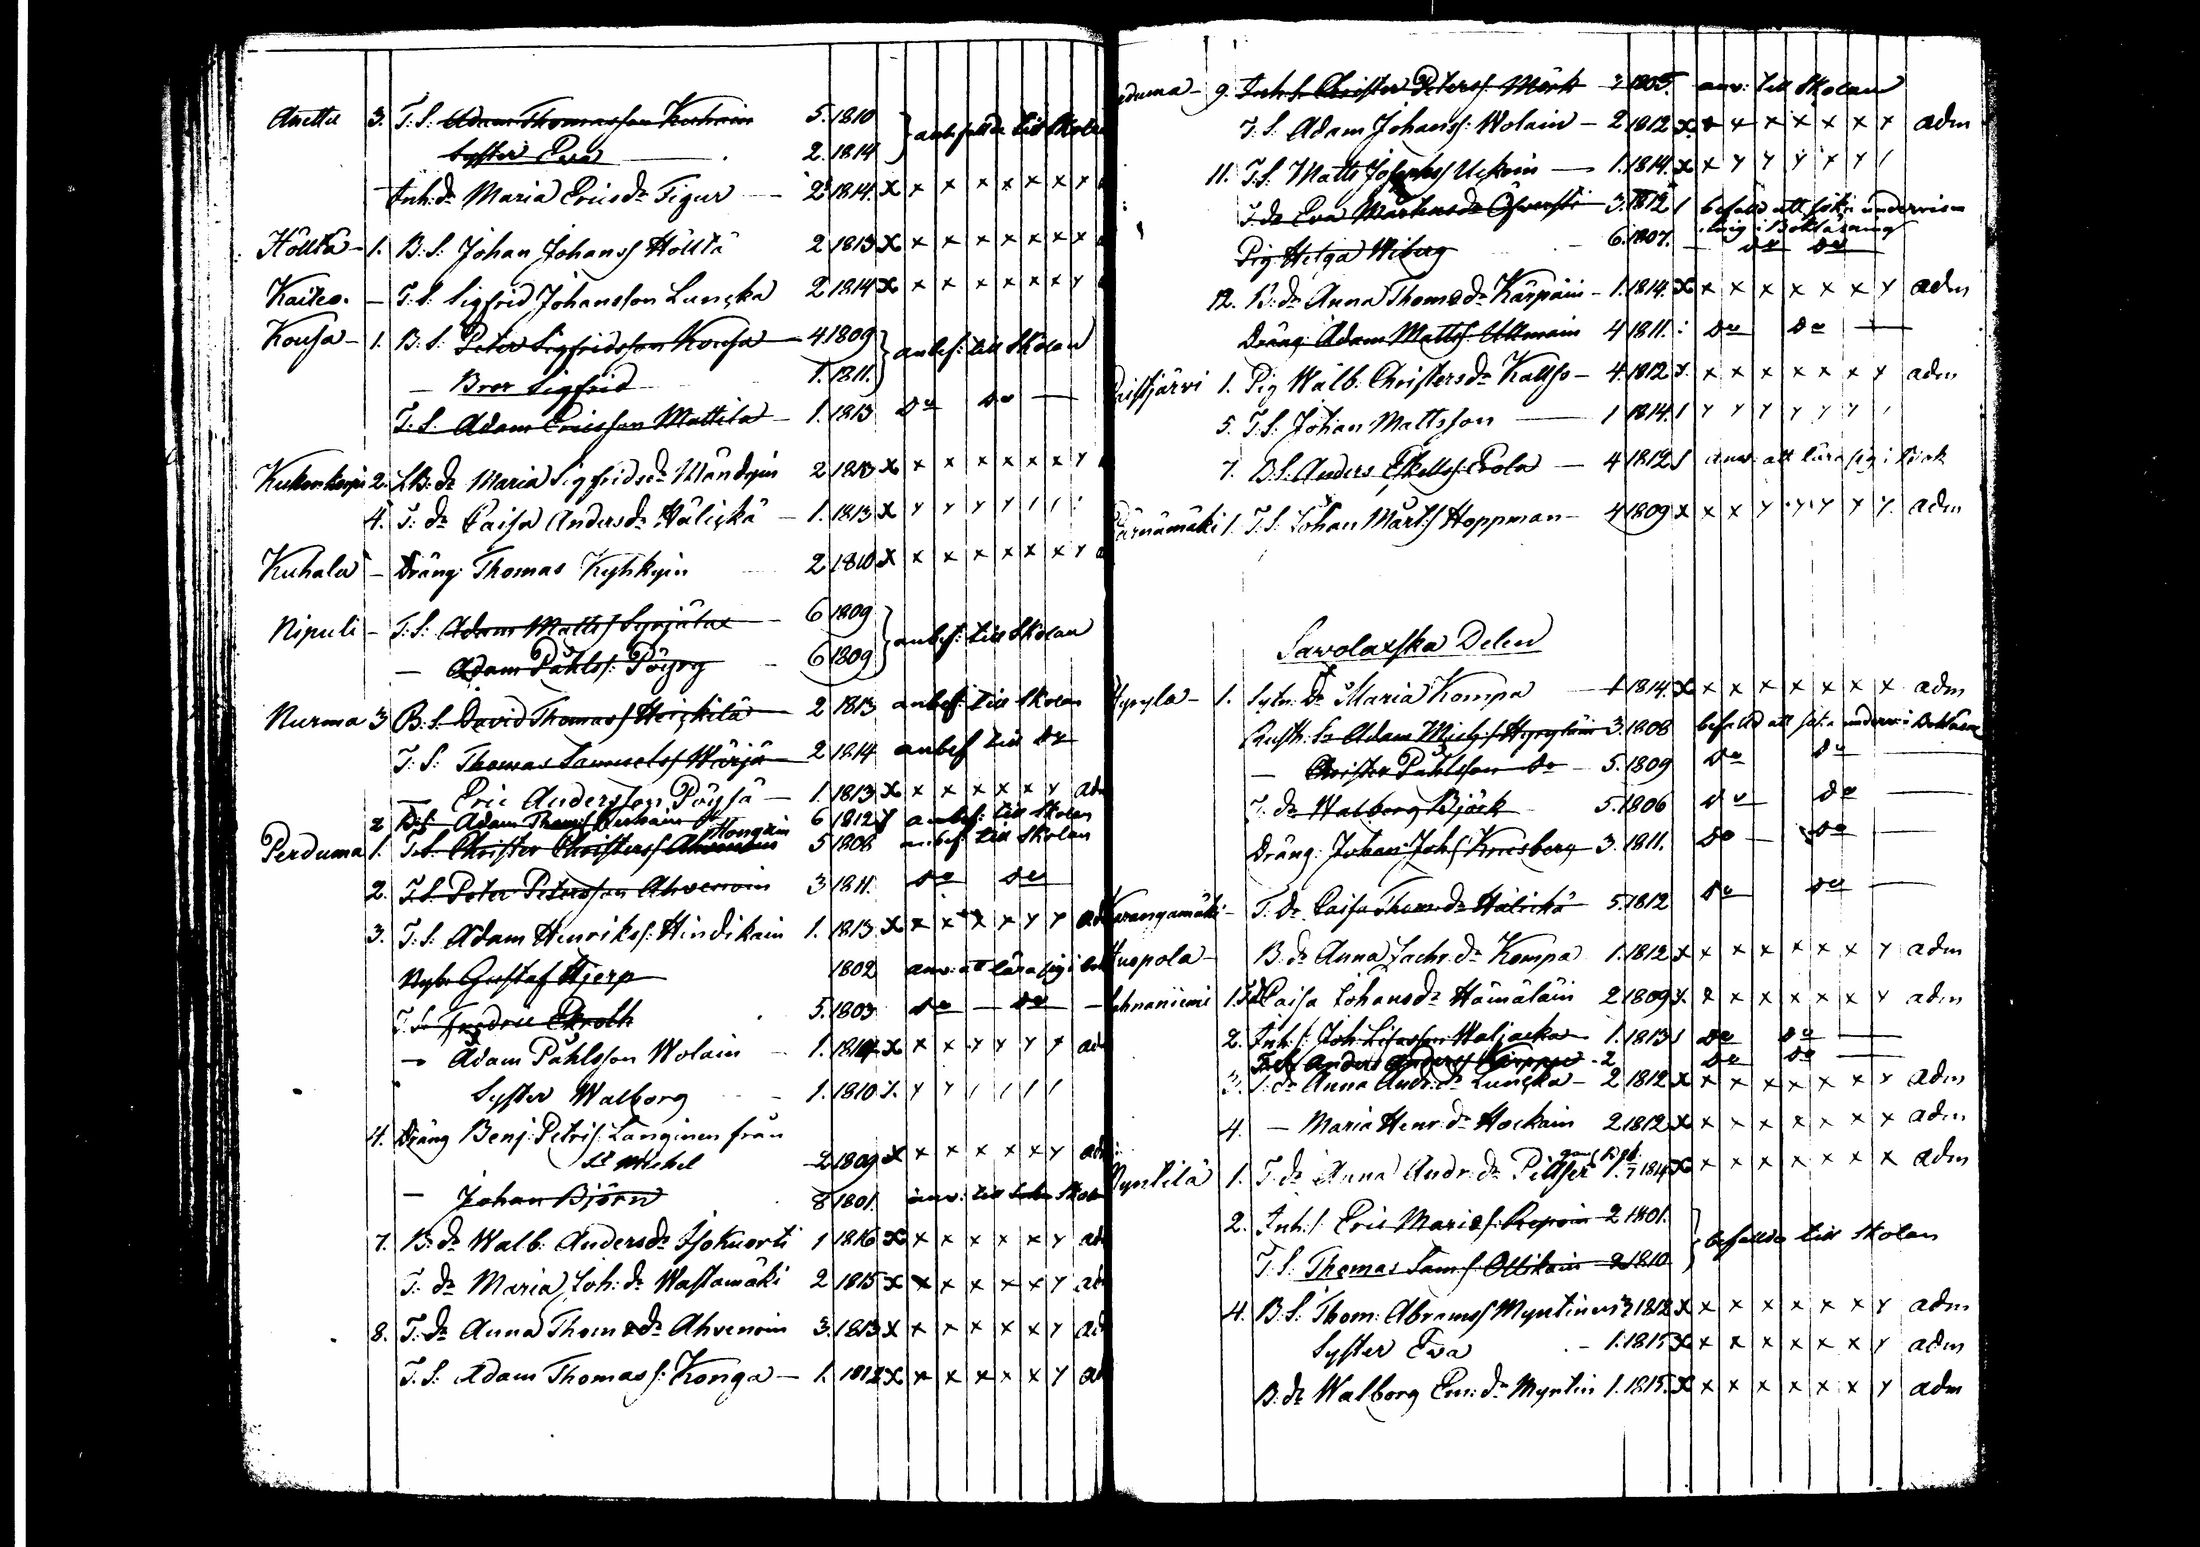 Anettu 3. T.S. Adam Thomasson Kurhoin 5. 1810 anbefallde till Skolan
Syster Eva 2. 1814
Inh: dr Maria Ericsdr Tigur 2. 1814. X x x x x x x y
Höltta 1. B.S. Johan Johanss Hölttä 2 1813 X x x x x x x x
Kaiteo. T.S. Sigfrid Johansson Lunçka 2 1814 X x x x x x x y
Kousa 1. B.S. Peter Sigfridsson Kousa 4 1809 anbef: till Skolan
Bror Sigfrid 1. 1811.
T.S. Adam Ericsson Mattila 1. 1813 do do
2. dr Maria Sigfridsdr 2 1813 X x x x x x x y
4. T: dr Caisa Andersdr Häliçkä 1. 1813 X y y y y / / /
Kuhala Dräng Thomas Kyhkyin 2 1810 X x x x x x x y
Nipuli T.S. Adam Matts Syrjälax 6 1809 anbef: till Skolan
Adam Påhlss: Pöyry 6 1809
Nurma 3 B.S. David Thomass Heiçkilä 2 1813 anbef: till Skolan
T.S. Thomas Samuelss Wärjä 2 1814 anbef till do
Eric Andersson Pöysä 1. 1813 X x x x x x y adm
2 Adam Thoms 6 1812 y anbef: till Skolan
Perduma 1. T.S. Christer Christerss Hongain 5 1808 anbef: till Skolan
2. T.S. Peter Petersson Ahvenoin 3 1811. do do
3. T.S. Adam Henrikss: Hindikain 1. 1813 X x x x x y y ad
Nyb: Gustaf Hjerp 1802 anv: att lära sig i bok
T.S. Fredric Ekroth 5. 1803 do do
Adam Påhlsson Wolain 1. 1814 X x x y y y y ad
Syster Walborg 1. 1810 /. y y / / / /
4. Dräng Benj: Petriss: Langinen från
St Michel 2 1809 X x x x x x y ad
Johan Björn 8 1801. anv: till Skola
7. B: dr Walb: Andersdr Isokuorti 1 1816 X x x x x x y ad
T: dr Maria Joh: dr Wastamäki 2 1815 X x x x x x y ad
8. T: dr Anna Thomsdr Ahvenoin 3. 1813 X x x x x x y ad
T.S. Adam Thomass: Konga 1. 1812 X x x x x x y ad
duma 9. Inh. S. Christer Peterss Mörk 3 1805. anv: till Skolan
T.S. Adam Johanss: Wolain 2 1812 X x x x x x x x adm
11. T.S. Matts Josephss Uckoin 1. 1814. X x y y y x y /
T. dr Eva Mårtensdr 3. 1812 / befalld att söka undervisn
ning i Bokläsning
Pig: Helga Wiberg 6. 1807. do do
12. B: dr Anna Thomsdr Kärpäin 1. 1814. X x x x x x x y adm
Dräng Adam Matts: Ulkonain 4 1811. do do
aistjärvi 1. Pig Walb. Christersdr Kattso 4. 1812 x. x x x x x x y adm
5. T.S. Johan Mattsson 1 1814. / y y y y y y /
7. B.S. Anders Eskells: Erola 4 1812 / anv: att lära sig i bok
ärnämäki 1. T.S. Johan Mårts Hoppman 4 1809 X x x y y y y y adm
Savolaxska Delen
Hyyylä 1. Sytn: Dr Maria Kompa 1 1814. X x x x x x x x adm
Rusth. Sr Adam Mich:s 3. 1808 befalld att söka underv: i Bokläsn
Christer Påhlsson do 5. 1809 do do
T: dr Walborg Björk 5. 1806 do do
Dräng: Johan Joh:s Kruseberg 3. 1811. do do
arangamäki T. dr Caisa Thom: dr Häliçkä 5. 1812 do do
uopola B: dr Anna Zachr: dr Kompa 1. 1812 X x x x x x x y adm
ahnaniemi 1. T.dr Caisa Johansdr Hämäläin 2 1809 X. x x x x x x y adm
2. Inh: Joh: Waljacka 1. 1813 / do do
T.S. Anders Anders: 2 do do
3. T: dr Anna Andr: dr Lunçka 2 1812 X x x x x x x y adm
4. Maria Henr: dr Hockain 2. 1812 X x x x x x x x adm
yntilä 1. T: dr Anna Andr: dr 1814 X x x x x x x x adm
2. Inh: S. Eric Maries: Repoin 2 1801. befallde till Skolan
T.S. Thomas Sams: Ollikain 2 1810
4. B.S. Thom: Abramss Myntinen 3 1812 X x x x x x x y adm
Syster Eva 1. 1815 X x x x x x x y adm
B: dr Walborg Em: dr Myntin 1. 1815. X x x x x x x y adm